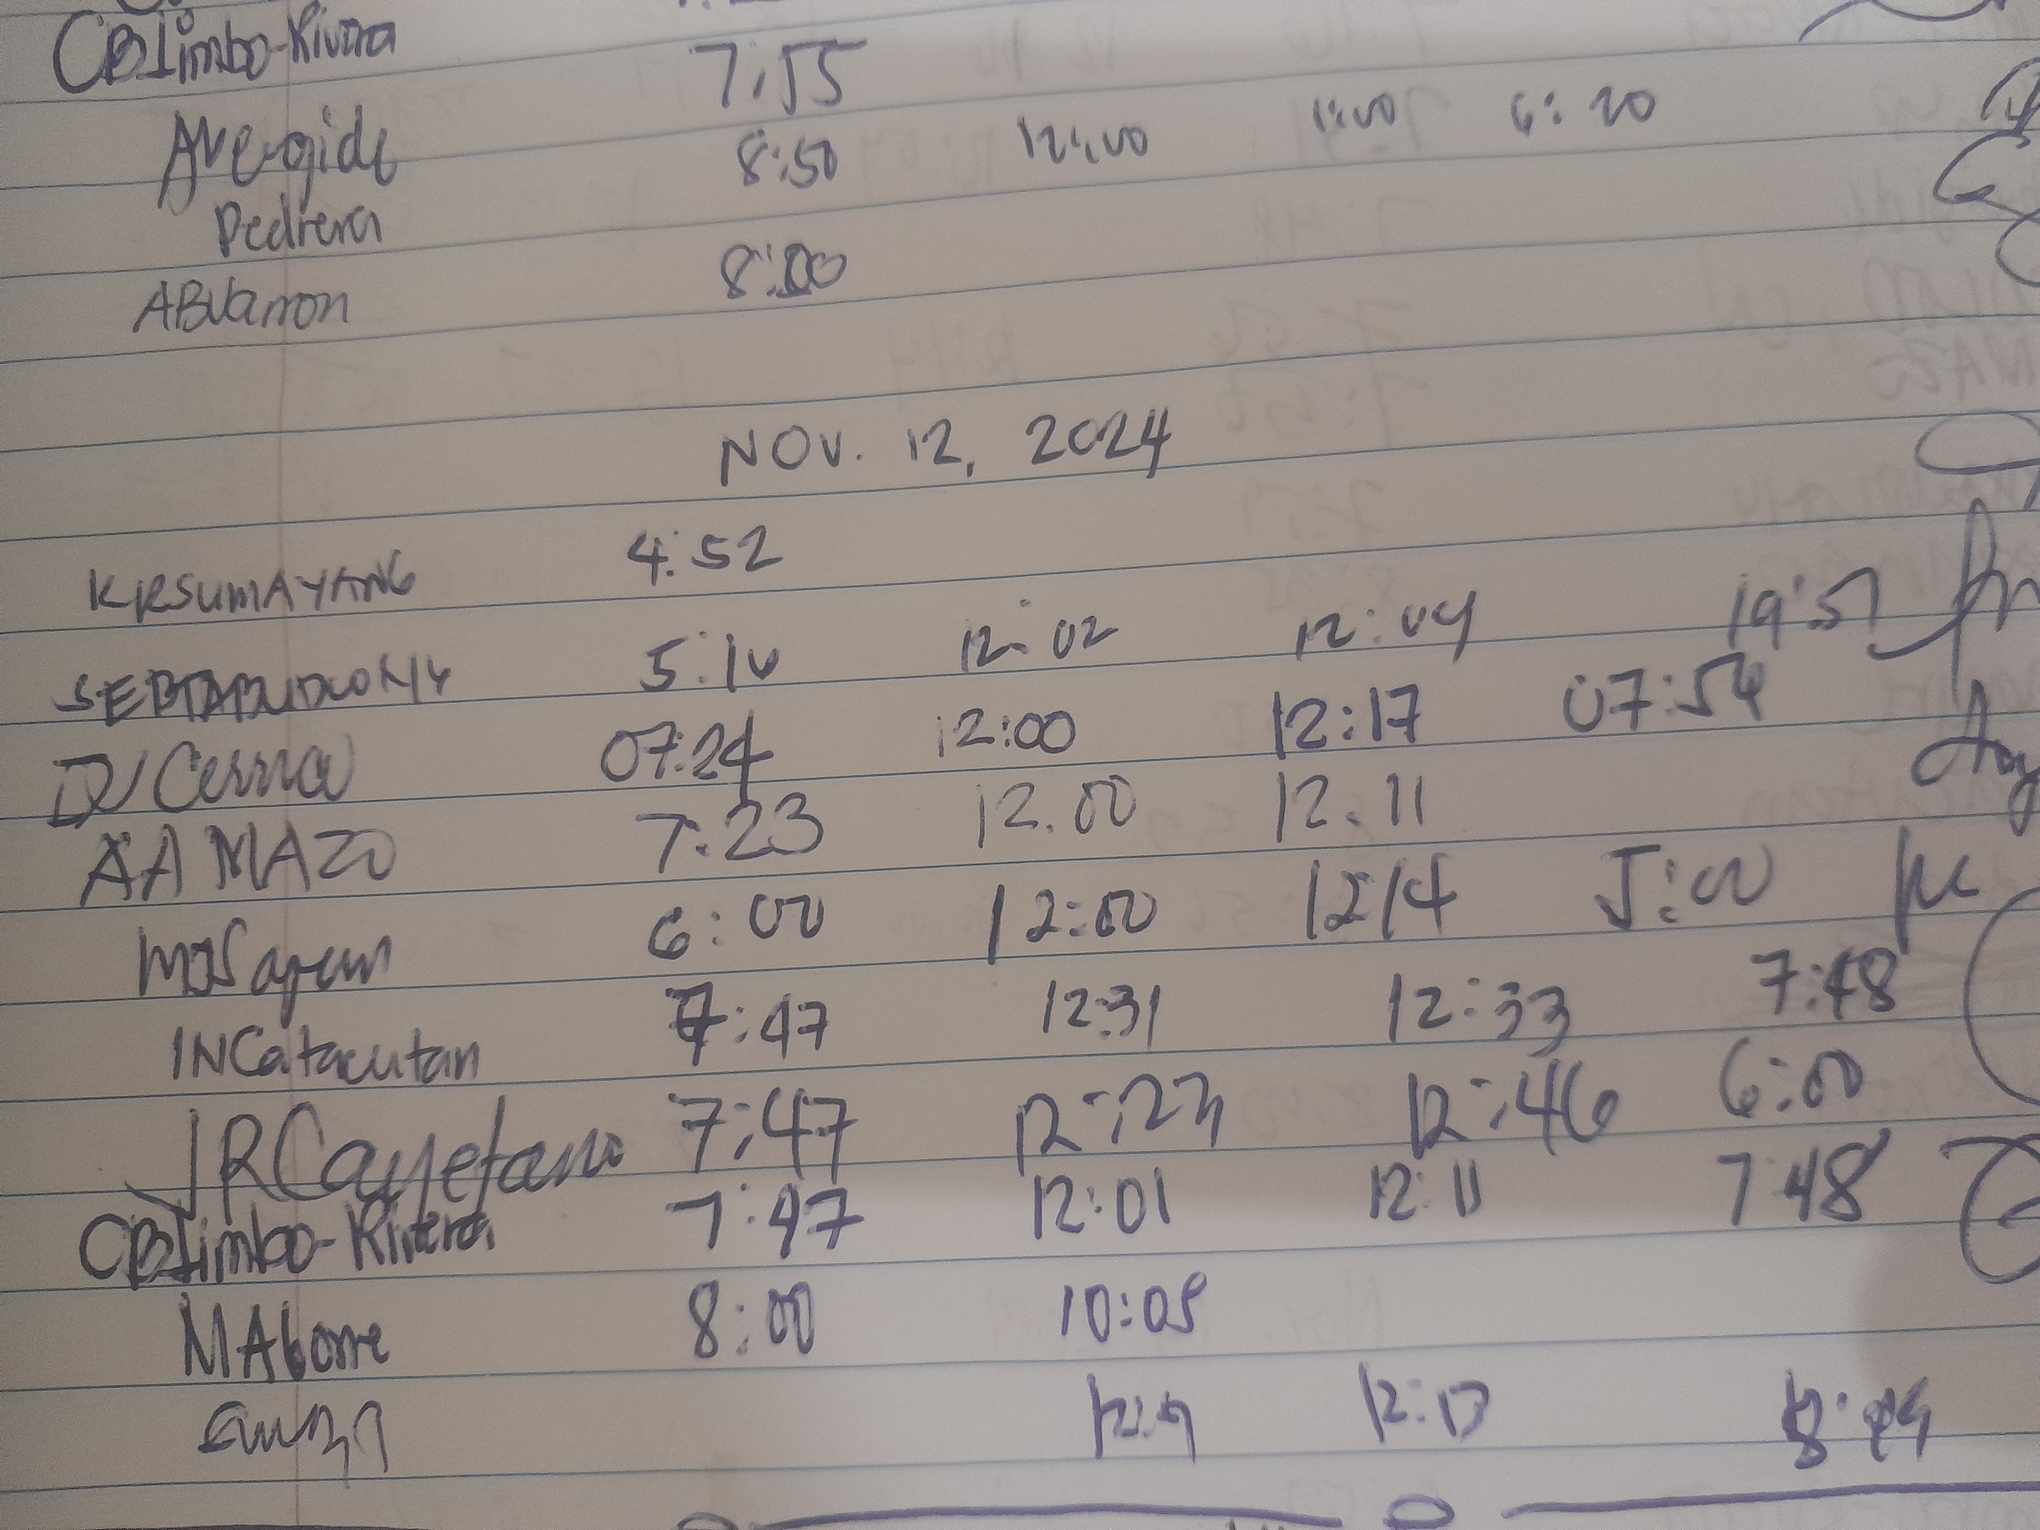 CBLimbo-Rivera 7:55
8:50 12:00 1:00 6:20
Pedrera
ABVarron 8:00
NOV. 12, 2024
KRSUMAYANG 4:52
5:10 12:02 12:04 19:57
DV Cerna 07:24 12:00 12:17 07:54
AA MAZO 7:23 12.00 12.11
6:00 12:00 1214 5:00
INCatacutan 7:47 12:31 12:33 7:48
JRCayetano 7:47 12:23 12:46 6:00
CBLimbo-Rivera 7:47 12:01 12:11 7:48
MAborre 8:00 10:05
12:13